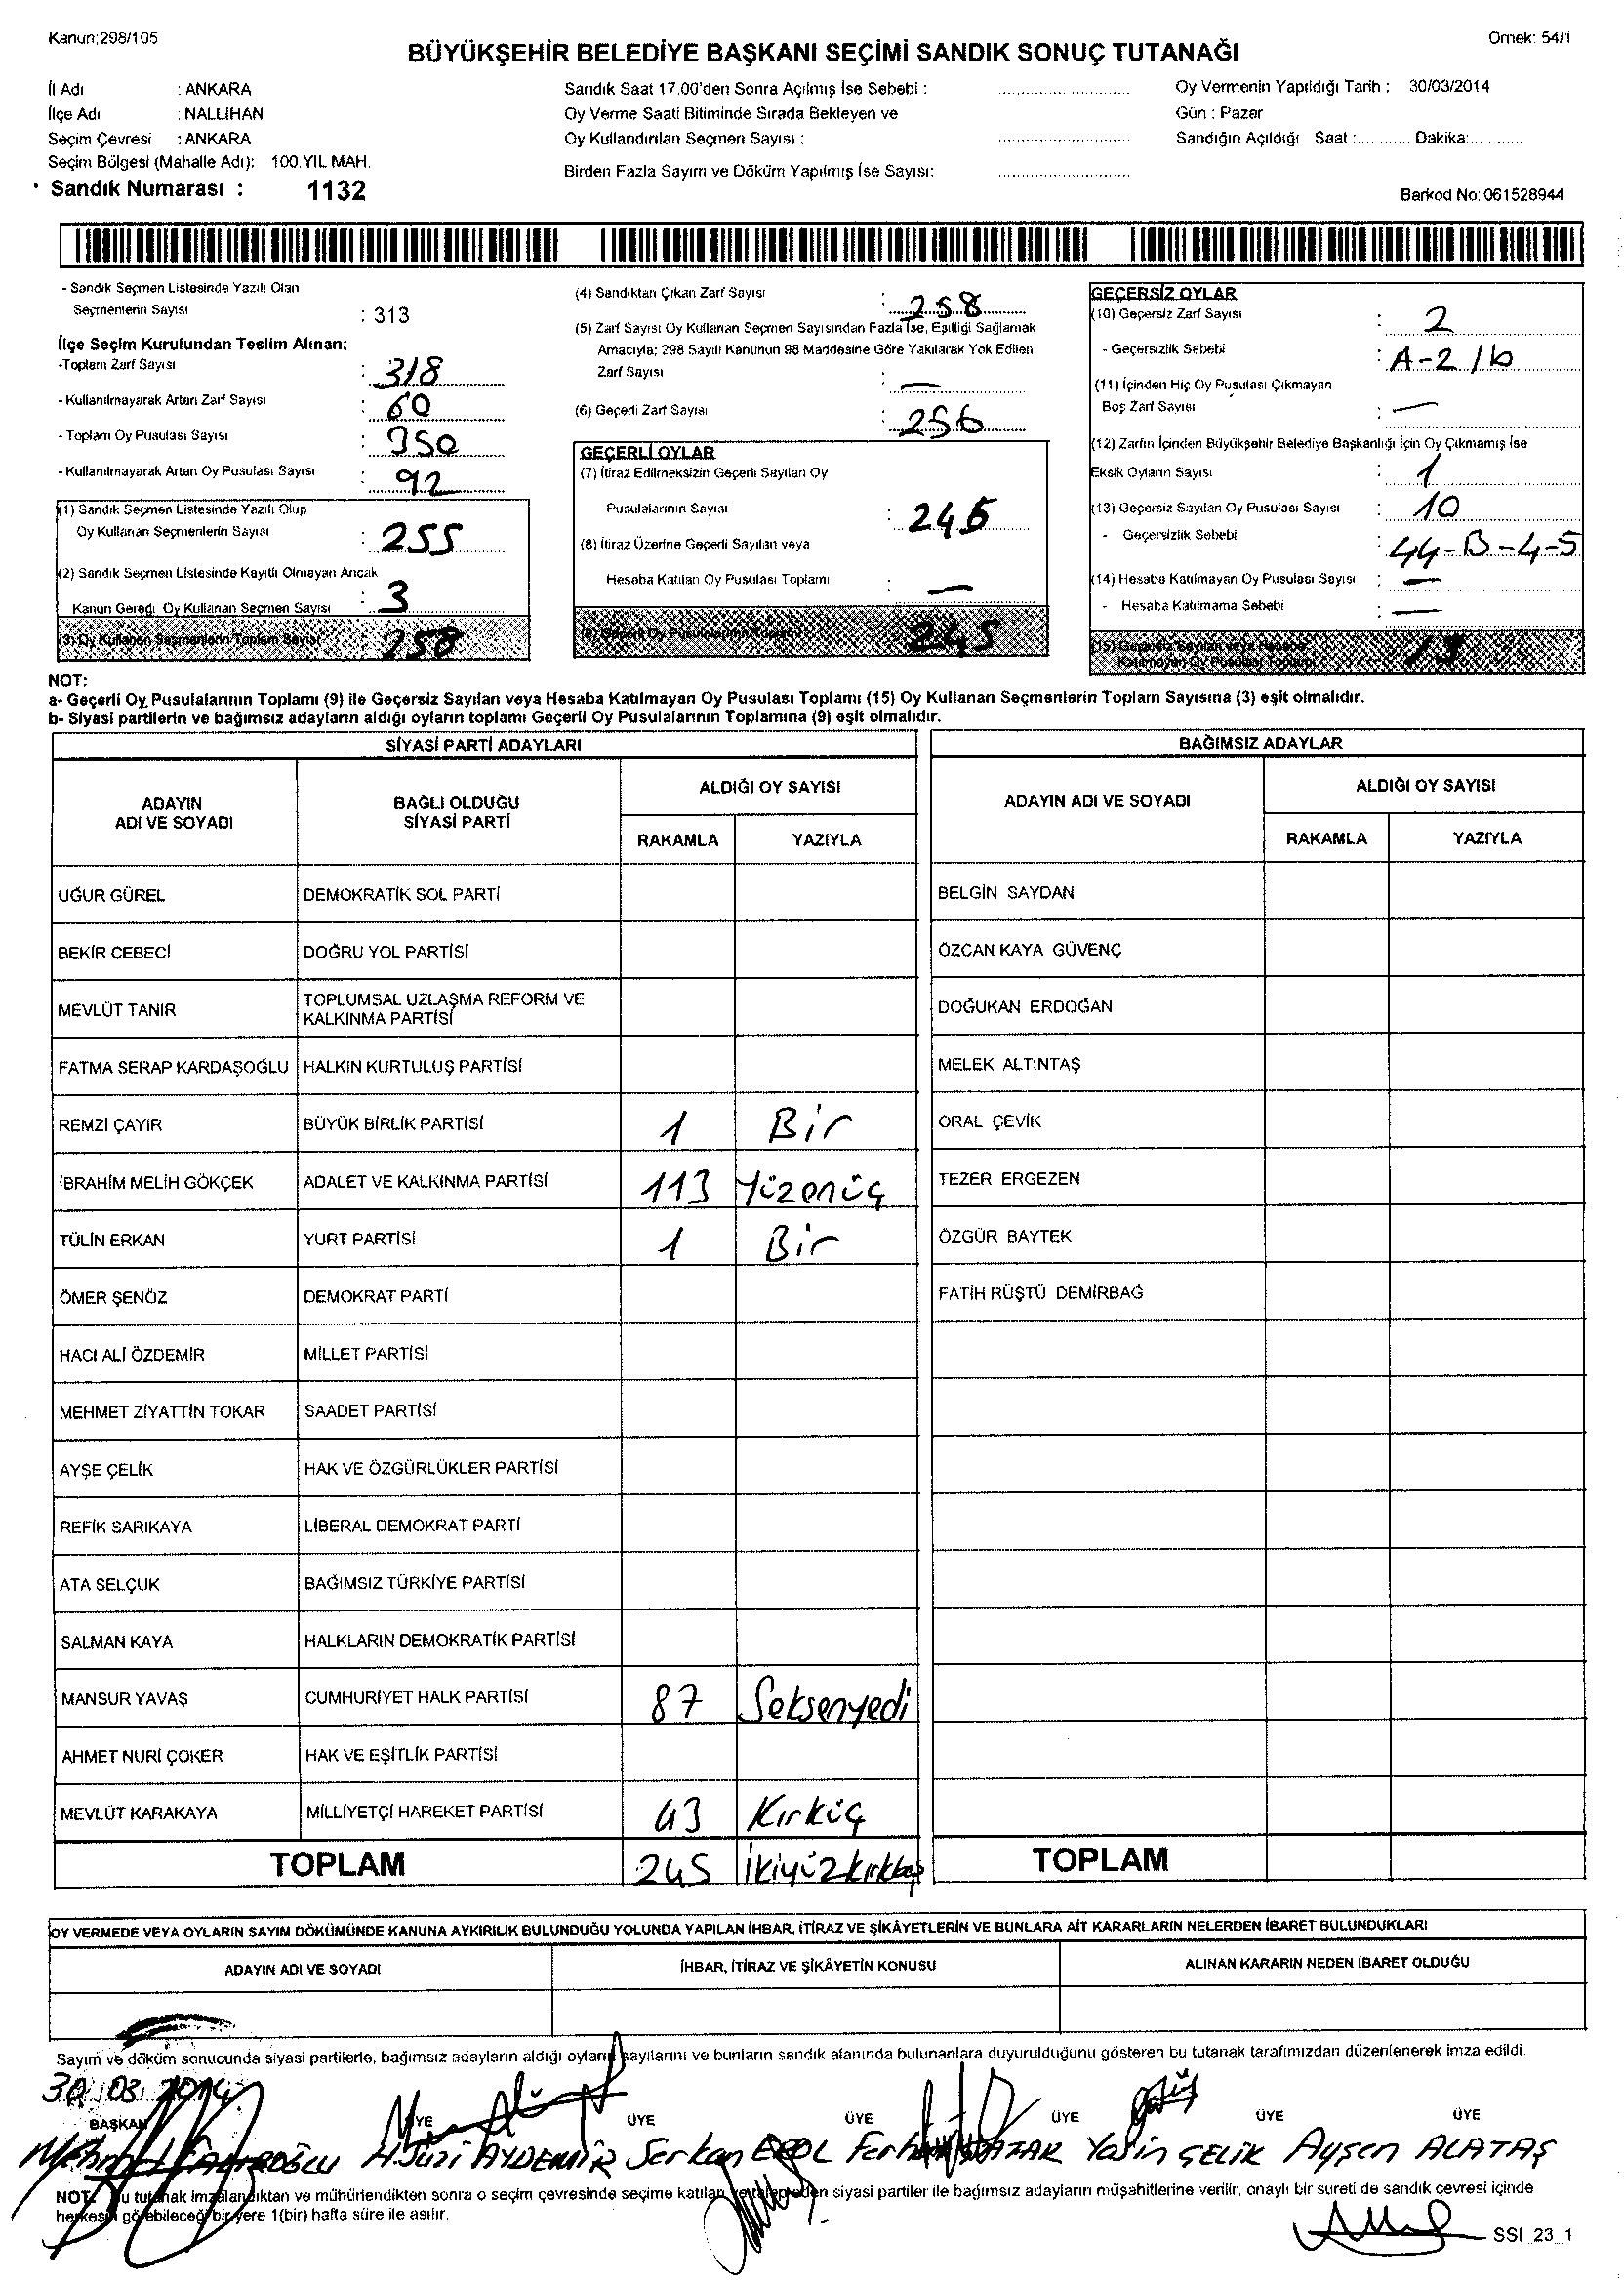 Kanun;298/105
Örnek: 54/1
BÜYÜKŞEHİR BELEDİYE BAŞKANI SEÇİMİ SANDIK SONUÇ TUTANAĞI
İl Adı : ANKARA
İlçe Adı : NALLIHAN
Seçim Çevresi : ANKARA
Seçim Bölgesi (Mahalle Adı): 100.YIL MAH.
Sandık Numarası : 1132
Sandık Saat 17.00'den Sonra Açılmış İse Sebebi :
Oy Verme Saati Bitiminde Sırada Bekleyen ve
Oy Kullandırılan Seçmen Sayısı :
Birden Fazla Sayım ve Döküm Yapılmış İse Sayısı:
Oy Vermenin Yapıldığı Tarih : 30/03/2014
Gün : Pazar
Sandığın Açıldığı Saat :.... ....... Dakika:... ........
Barkod No: 061528944
- Sandık Seçmen Listesinde Yazılı Olan
Seçmenlerin Sayısı : 313
İlçe Seçim Kurulundan Teslim Alınan;
-Toplam Zarf Sayısı : 318
- Kullanılmayarak Artan Zarf Sayısı : 60
- Toplam Oy Pusulası Sayısı : 350
- Kullanılmayarak Artan Oy Pusulası Sayısı : 92
(1) Sandık Seçmen Listesinde Yazılı Olup
Oy Kullanan Seçmenlerin Sayısı : 255
(2) Sandık Seçmen Listesinde Kayıtlı Olmayan Ancak
Kanun Gereği Oy Kullanan Seçmen Sayısı : 3
(3) Oy Kullanan Seçmenlerin Toplam Sayısı 258
(4) Sandıktan Çıkan Zarf Sayısı : 258
(5) Zarf Sayısı Oy Kullanan Seçmen Sayısından Fazla İse, Eşitliği Sağlamak
Amacıyla; 298 Sayılı Kanunun 98 Maddesine Göre Yakılarak Yok Edilen
Zarf Sayısı : —
(6) Geçerli Zarf Sayısı : 256
GEÇERLİ OYLAR
(7) İtiraz Edilmeksizin Geçerli Sayılan Oy
Pusulalarının Sayısı : 245
(8) İtiraz Üzerine Geçerli Sayılan veya
Hesaba Katılan Oy Pusulası Toplamı : —
(9) Geçerli Oy Pusulalarının Toplamı 245
GEÇERSİZ OYLAR
(10) Geçersiz Zarf Sayısı : 2
- Geçersizlik Sebebi : A-2/b
(11) İçinden Hiç Oy Pusulası Çıkmayan
Boş Zarf Sayısı : —
(12) Zarfın İçinden Büyükşehir Belediye Başkanlığı İçin Oy Çıkmamış İse
Eksik Oyların Sayısı : 1
(13) Geçersiz Sayılan Oy Pusulası Sayısı : 10
- Geçersizlik Sebebi : 44-B-4-5
(14) Hesaba Katılmayan Oy Pusulası Sayısı : —
- Hesaba Katılmama Sebebi : —
(15) Geçersiz Sayılan veya Hesaba
Katılmayan Oy Pusulası Toplamı 13
NOT:
a- Geçerli Oy Pusulalarının Toplamı (9) ile Geçersiz Sayılan veya Hesaba Katılmayan Oy Pusulası Toplamı (15) Oy Kullanan Seçmenlerin Toplam Sayısına (3) eşit olmalıdır.
b- Siyasi partilerin ve bağımsız adayların aldığı oyların toplamı Geçerli Oy Pusulalarının Toplamına (9) eşit olmalıdır.
SİYASİ PARTİ ADAYLARI
ADAYIN ADI VE SOYADI
BAĞLI OLDUĞU SİYASİ PARTİ
ALDIĞI OY SAYISI
RAKAMLA YAZIYLA
UĞUR GÜREL DEMOKRATİK SOL PARTİ
BEKİR CEBECİ DOĞRU YOL PARTİSİ
MEVLÜT TANIR TOPLUMSAL UZLAŞMA REFORM VE KALKINMA PARTİSİ
FATMA SERAP KARDAŞOĞLU HALKIN KURTULUŞ PARTİSİ
REMZİ ÇAYIR BÜYÜK BİRLİK PARTİSİ 1 Bir
İBRAHİM MELİH GÖKÇEK ADALET VE KALKINMA PARTİSİ 113 Yüzonüç
TÜLİN ERKAN YURT PARTİSİ 1 Bir
ÖMER ŞENÖZ DEMOKRAT PARTİ
HACI ALİ ÖZDEMİR MİLLET PARTİSİ
MEHMET ZİYATTİN TOKAR SAADET PARTİSİ
AYŞE ÇELİK HAK VE ÖZGÜRLÜKLER PARTİSİ
REFİK SARIKAYA LİBERAL DEMOKRAT PARTİ
ATA SELÇUK BAĞIMSIZ TÜRKİYE PARTİSİ
SALMAN KAYA HALKLARIN DEMOKRATİK PARTİSİ
MANSUR YAVAŞ CUMHURİYET HALK PARTİSİ 87 Seksenyedi
AHMET NURİ ÇOKER HAK VE EŞİTLİK PARTİSİ
MEVLÜT KARAKAYA MİLLİYETÇİ HAREKET PARTİSİ 43 Kırküç
TOPLAM 245 İkiyüzkırkbeş
BAĞIMSIZ ADAYLAR
ADAYIN ADI VE SOYADI
ALDIĞI OY SAYISI
RAKAMLA YAZIYLA
BELGİN SAYDAN
ÖZCAN KAYA GÜVENÇ
DOĞUKAN ERDOĞAN
MELEK ALTINTAŞ
ORAL ÇEVİK
TEZER ERGEZEN
ÖZGÜR BAYTEK
FATİH RÜŞTÜ DEMİRBAĞ
TOPLAM
OY VERMEDE VEYA OYLARIN SAYIM DÖKÜMÜNDE KANUNA AYKIRILIK BULUNDUĞU YOLUNDA YAPILAN İHBAR, İTİRAZ VE ŞİKÂYETLERİN VE BUNLARA AİT KARARLARIN NELERDEN İBARET BULUNDUKLARI
ADAYIN ADI VE SOYADI İHBAR, İTİRAZ VE ŞİKÂYETİN KONUSU ALINAN KARARIN NEDEN İBARET OLDUĞU
Sayım ve döküm sonucunda siyasi partilerle, bağımsız adayların aldığı oyların sayılarını ve bunların sandık alanında bulunanlara duyurulduğunu gösteren bu tutanak tarafımızdan düzenlenerek imza edildi.
30.03.2014
BAŞKAN ÜYE ÜYE ÜYE ÜYE ÜYE ÜYE
AYDEMİR Serkan EROL Yasin ÇELİK Ayşen ALATAŞ
NOT: Bu tutanak imzalandıktan ve mühürlendikten sonra o seçim çevresinde seçime katılan ve talep eden siyasi partiler ile bağımsız adayların müşahitlerine verilir, onaylı bir sureti de sandık çevresi içinde
herkesin görebileceği bir yere 1(bir) hafta süre ile asılır.
SSI_23_1